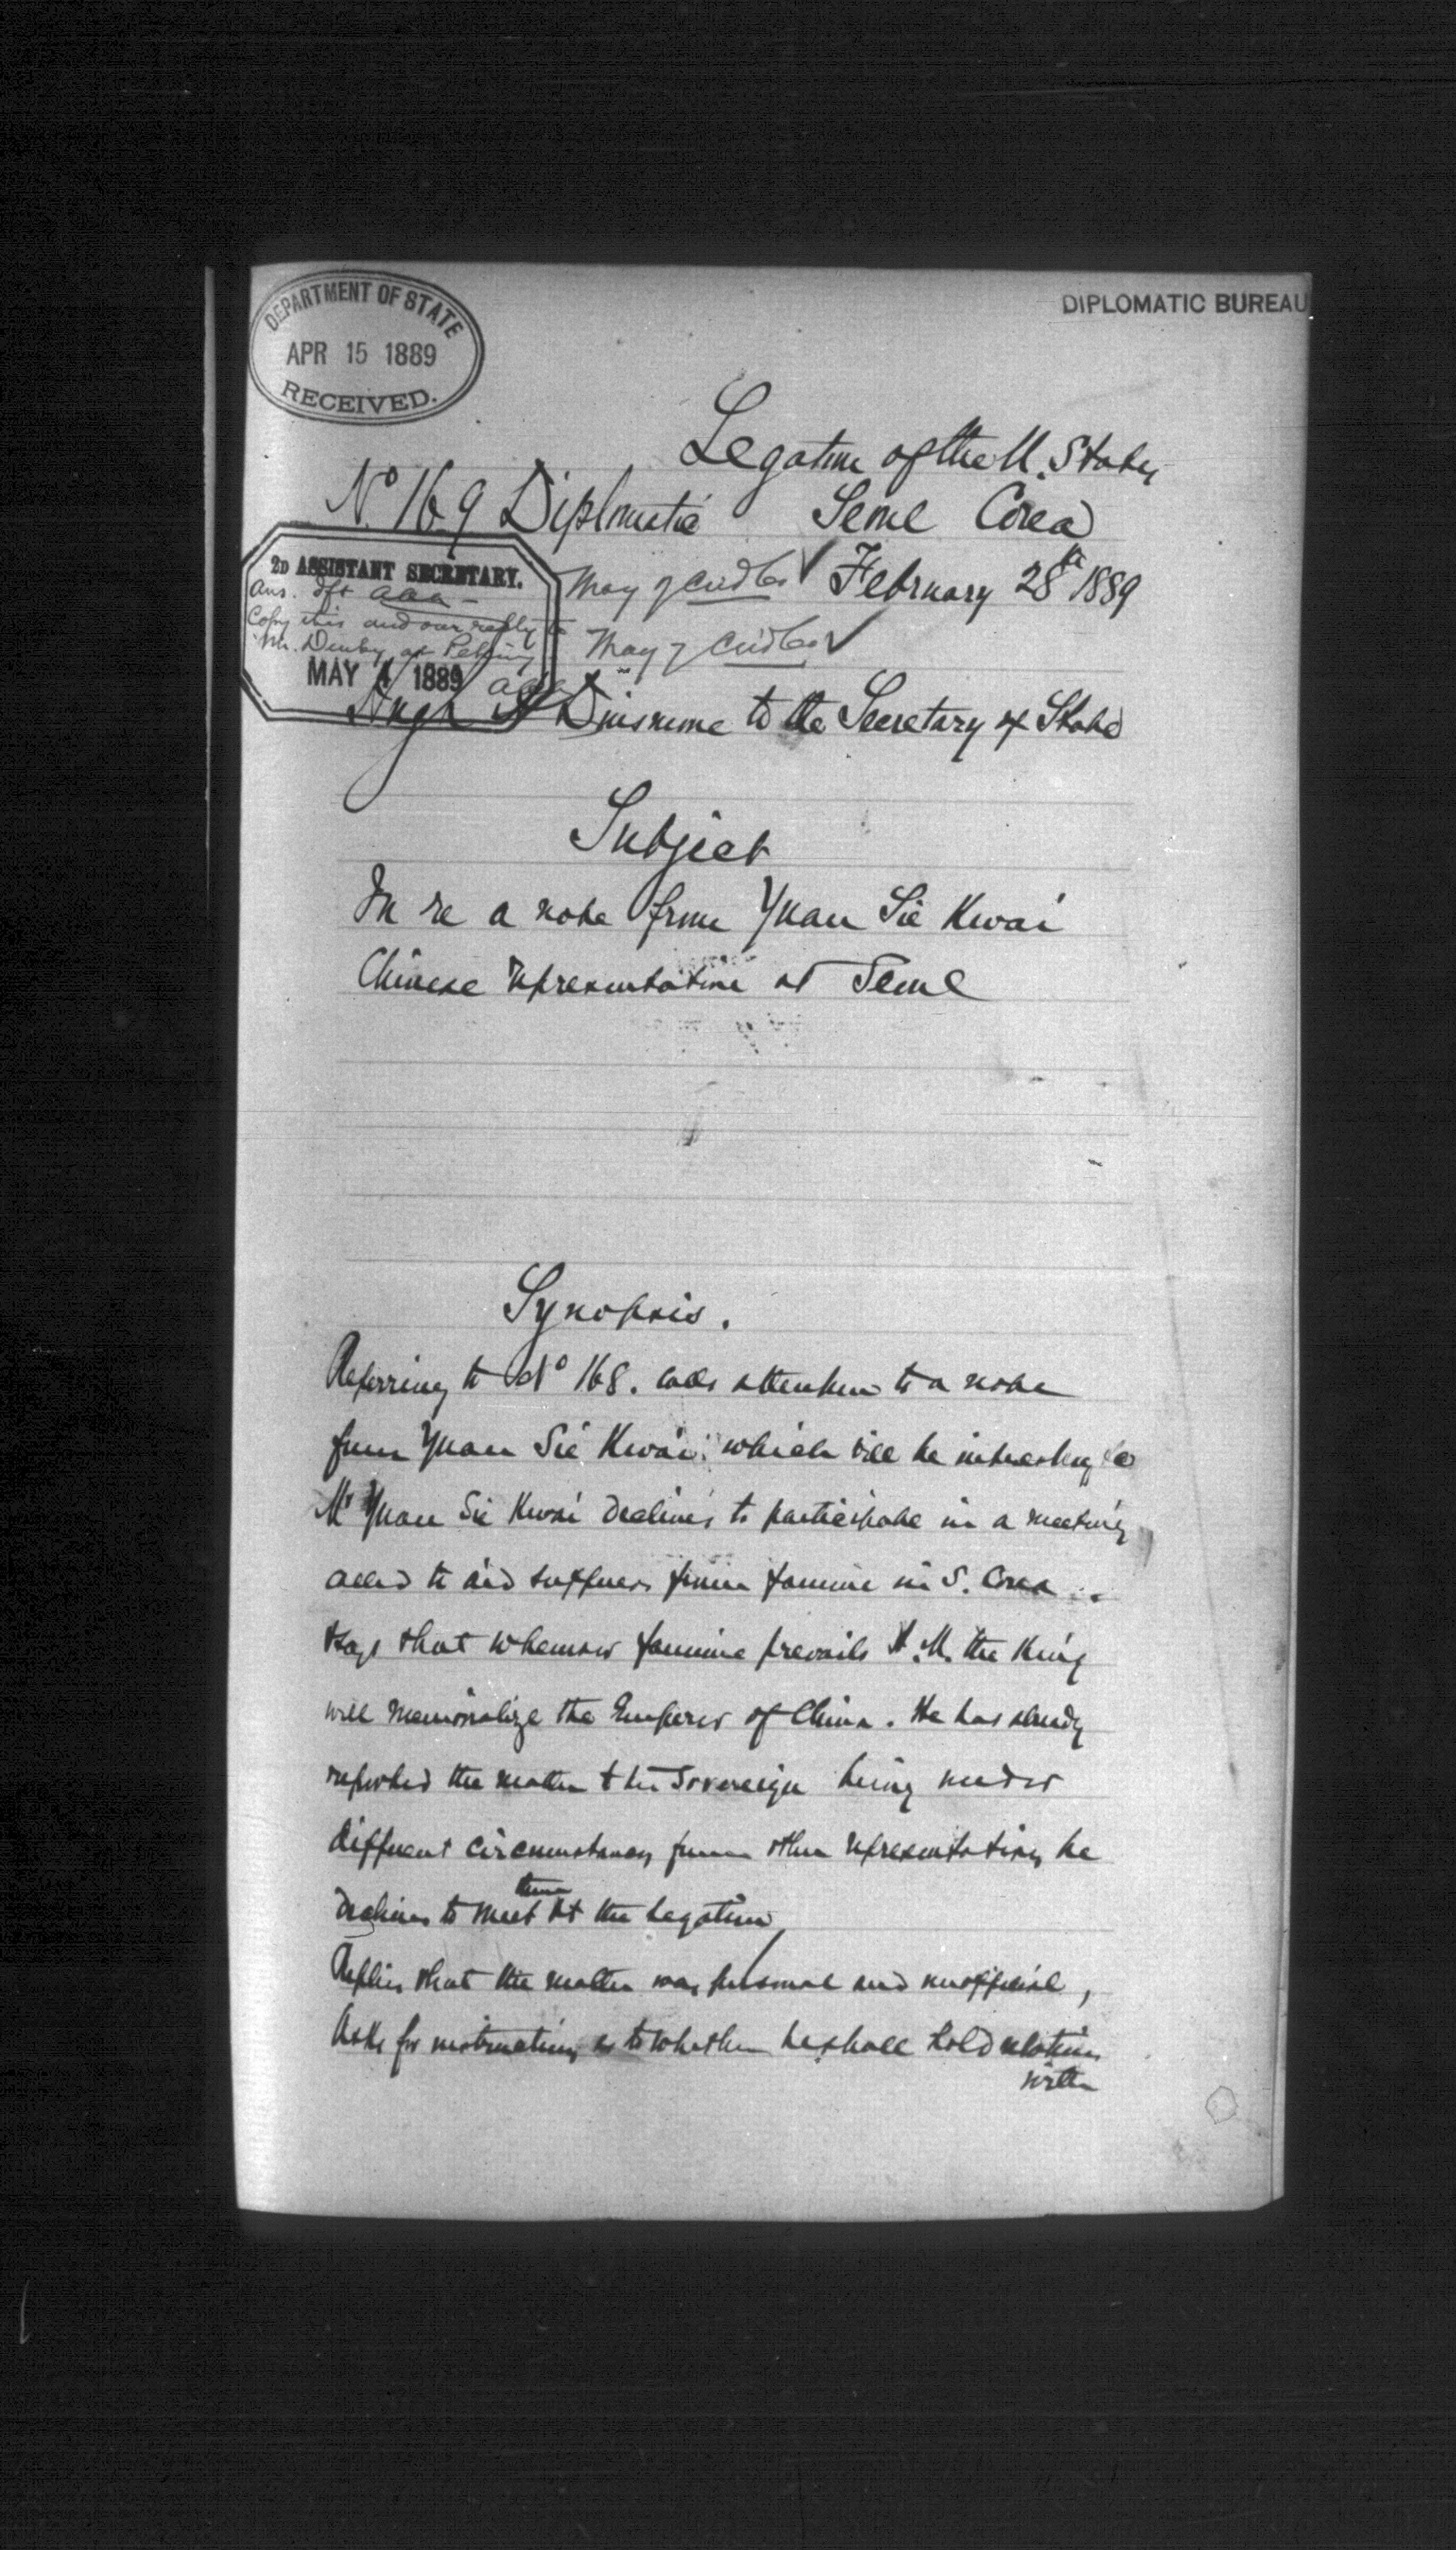 DEPARTMENT OF STATE
APR 15 1889
RECEIVED.
DIPLOMATIC BUREAU
Legation of the U. States
No 169 Diplomatic Seoul Corea
February 28th 1889
2D ASSISTANT SECRETARY.
Ans. dft aaa
Copy this and our reply to
Mr. Denby at Peking
MAY 4 1889 aaa
May 7
May 7
Hugh A Dinsmore to the Secretary of State
Subject
In re a note from Yuan Sie Kwai
Chinese representative at Seoul
Synopsis.
Referring to No 168. calls attention to a note
from Yuan Sie Kwai which will be interesting
Mr Yuan Sie Kwai declines to participate in a meeting
called to aid sufferers from famine in S. Corea.
Says that whenever famine prevails H. M. the King
will memorialize the Emperor of China. He has already
reported the matter & his Sovereign being under
different circumstances from other representatives he
declines to meet them at the Legation
Replies that the matter was personal and unofficial,
Asks for instructions as to whether he shall hold relations
with